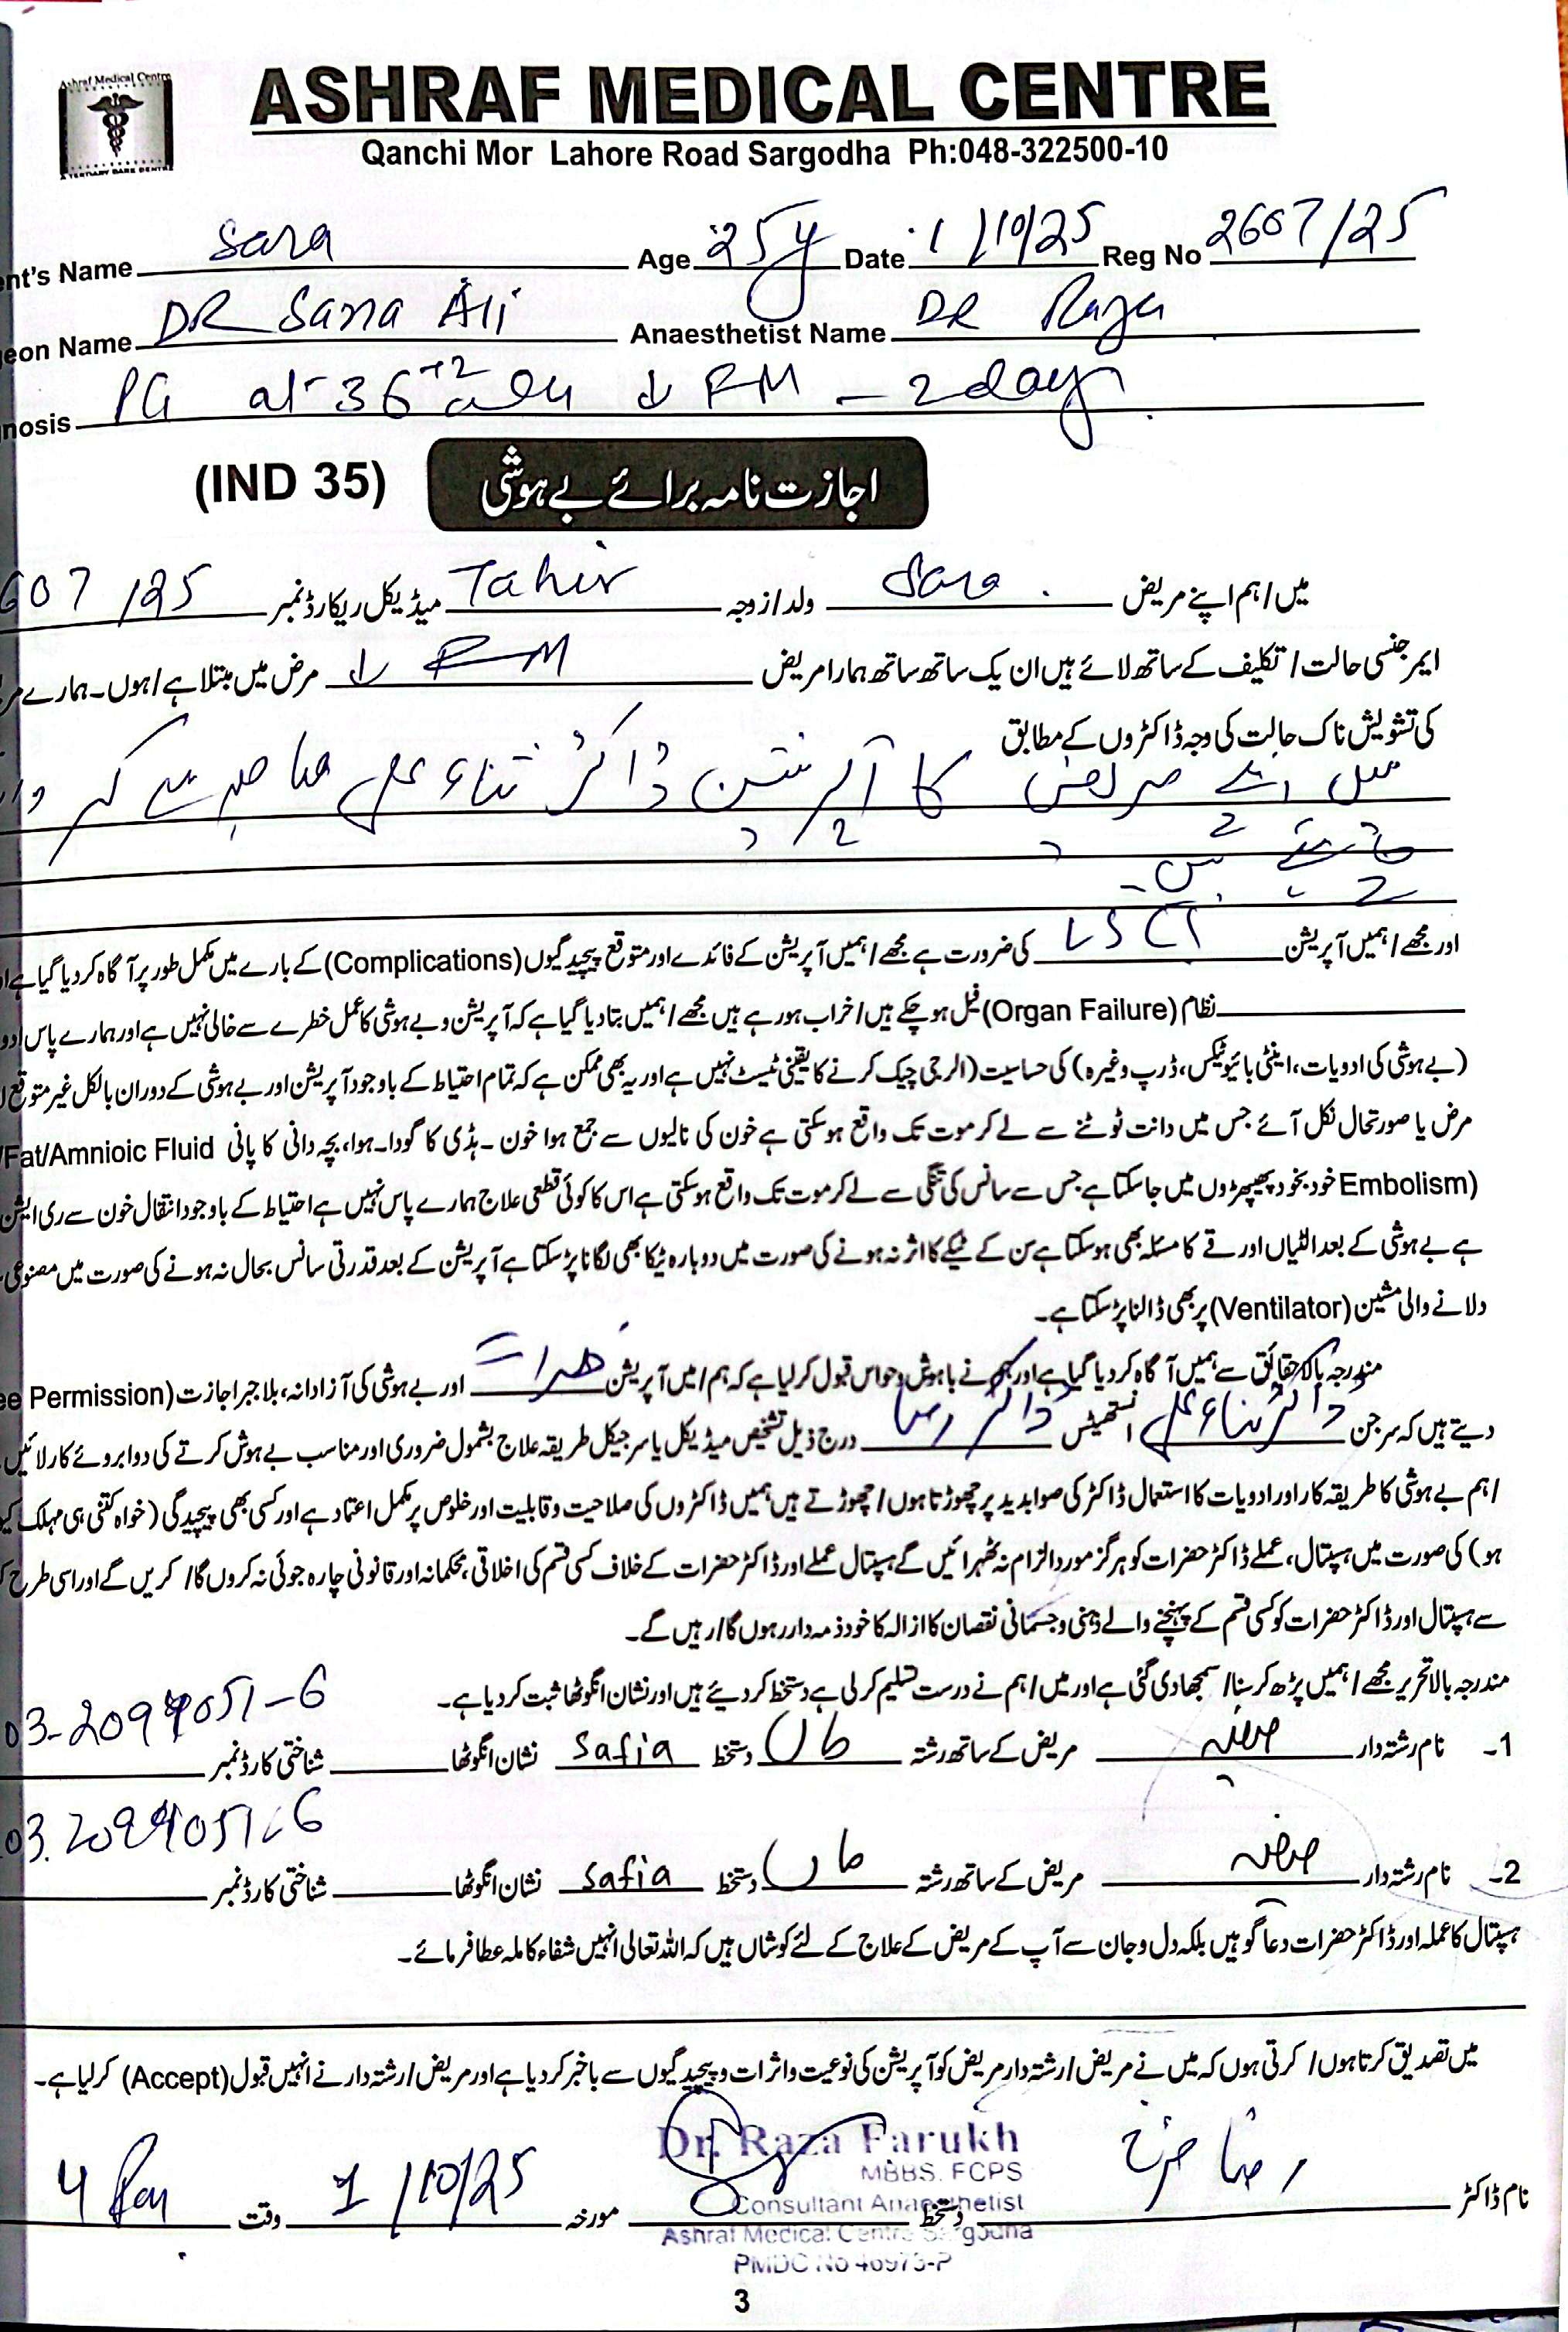 Ashraf Medical Centre
A TERTIARY CARE CENTRE
ASHRAF MEDICAL CENTRE
Qanchi Mor Lahore Road Sargodha Ph:048-322500-10
ent's Name Sara Age 25y Date 1/10/25 Reg No 2607/25
eon Name DR Sana Ali Anaesthetist Name DR Raza
nosis PG at 36+2 ↓ FM - 2 days
(IND 35) اجازت نامہ برائے بے ہوشی
میں/ہم اپنے مریض Sara ولد/زوجہ Tahir میڈیکل ریکارڈ نمبر 607/25
ایمرجنسی حالت/تکلیف کے ساتھ لائے ہیں ان یک ساتھ ساتھ ہمارا مریض ↓ FM مرض میں مبتلا ہے/ہوں۔ ہمارے
کی تشویش ناک حالت کی وجہ ڈاکٹروں کے مطابق
میں اپنے مریض کا آپریشن ڈاکٹر ثناء علی صاحبہ سے کر
چاہتے ہیں۔
اور مجھے/ہمیں آپریشن LSCS کی ضرورت ہے مجھے/ہمیں آپریشن کے فائدے اور متوقع پیچیدگیوں (Complications) کے بارے میں مکمل طور پر آگاہ کر دیا گیا ہے
نظام (Organ Failure) فیل ہو چکے ہیں/خراب ہو رہے ہیں مجھے/ہمیں بتا دیا گیا ہے کہ آپریشن و بے ہوشی کا عمل خطرے سے خالی نہیں ہے اور ہمارے پاس
(بے ہوشی کی ادویات، اینٹی بائیوٹیکس، ڈرپ وغیرہ) کی حساسیت (الرجی چیک کرنے کا یقینی ٹیسٹ نہیں ہے اور یہ بھی ممکن ہے کہ تمام احتیاط کے باوجود آپریشن اور بے ہوشی کے دوران بالکل غیر متوقع
مرض یا صورتحال نکل آئے جس میں دانت ٹوٹنے سے لے کر موت تک واقع ہو سکتی ہے خون کی نالیوں سے جمع ہوا خون۔ ہڈی کا گودا۔ ہوا، بچہ دانی کا پانی Fat/Amnioic Fluid/
(Embolism خود بخود پھیپھڑوں میں جا سکتا ہے جس سے سانس کی تنگی سے لے کر موت تک واقع ہو سکتی ہے اس کا کوئی قطعی علاج ہمارے پاس نہیں ہے احتیاط کے باوجود انتقال خون سے ری ایکشن
ہے بے ہوشی کے بعد الٹیاں اور قے کا مسئلہ بھی ہو سکتا ہے سن کے ٹیکے کا اثر نہ ہونے کی صورت میں دوبارہ ٹیکا بھی لگانا پڑ سکتا ہے آپریشن کے بعد قدرتی سانس بحال نہ ہونے کی صورت میں مصنوعی
دلانے والی مشین (Ventilator) پر بھی ڈالنا پڑ سکتا ہے۔
مندرجہ بالا حقائق سے ہمیں آگاہ کر دیا گیا ہے اور ہم نے باہوش و حواس قبول کر لیا ہے کہ ہم/میں آپریشن اور بے ہوشی کی آزادانہ، بلا جبر اجازت (ee Permission
دیتے ہیں کہ سرجن ڈاکٹر ثناء علی انستھیٹس ڈاکٹر رضا درج ذیل تشخیص میڈیکل یا سرجیکل طریقہ علاج بشمول ضروری اور مناسب بے ہوش کرنے کی دوا بروئے کار لائیں
/ہم بے ہوشی کا طریقہ کار اور ادویات کا استعمال ڈاکٹر کی صوابدید پر چھوڑتا ہوں/چھوڑتے ہیں ہمیں ڈاکٹروں کی صلاحیت و قابلیت اور خلوص پر مکمل اعتماد ہے اور کسی بھی پیچیدگی (خواہ کتنی ہی مہلک
ہو) کی صورت میں ہسپتال، عملے ڈاکٹر حضرات کو ہرگز مورد الزام نہ ٹھہرائیں گے ہسپتال عملے اور ڈاکٹر حضرات کے خلاف کسی قسم کی اخلاقی، محکمانہ اور قانونی چارہ جوئی نہ کروں گا/کریں گے اور اسی طرح
سے ہسپتال اور ڈاکٹر حضرات کو کسی قسم کے پہنچنے والے ذہنی و جسمانی نقصان کا ازالہ کا خود ذمہ دار رہوں گا/رہیں گے۔
مندرجہ بالا تحریر مجھے/ہمیں پڑھ کر سنا/سمجھا دی گئی ہے اور میں/ہم نے درست تسلیم کر لی ہے دستخط کر دیئے ہیں اور نشان انگوٹھا ثبت کر دیا ہے۔
1۔ نام رشتہ دار صفیہ مریض کے ساتھ رشتہ ماں دستخط Safia نشان انگوٹھا شناختی کارڈ نمبر 03-2094051-6
2۔ نام رشتہ دار صفیہ مریض کے ساتھ رشتہ ماں دستخط Safia نشان انگوٹھا شناختی کارڈ نمبر 03.2094051-6
ہسپتال کا عملہ اور ڈاکٹر حضرات دعا گو ہیں بلکہ دل و جان سے آپ کے مریض کے علاج کے لئے کوشاں ہیں کہ اللہ تعالی انہیں شفاء کاملہ عطا فرمائے۔
میں تصدیق کرتا ہوں/کرتی ہوں کہ میں نے مریض/رشتہ دار مریض کو آپریشن کی نوعیت و اثرات و پیچیدگیوں سے باخبر کر دیا ہے اور مریض/رشتہ دار نے انہیں قبول (Accept) کر لیا ہے۔
نام ڈاکٹر رضا فرخ دستخط مورخہ 1/10/25 وقت 4 Pm
Dr. Raza Farukh
MBBS. FCPS
Consultant Anaesthetist
Ashraf Medical Centre Sargodha
PMDC No 46973-P
3